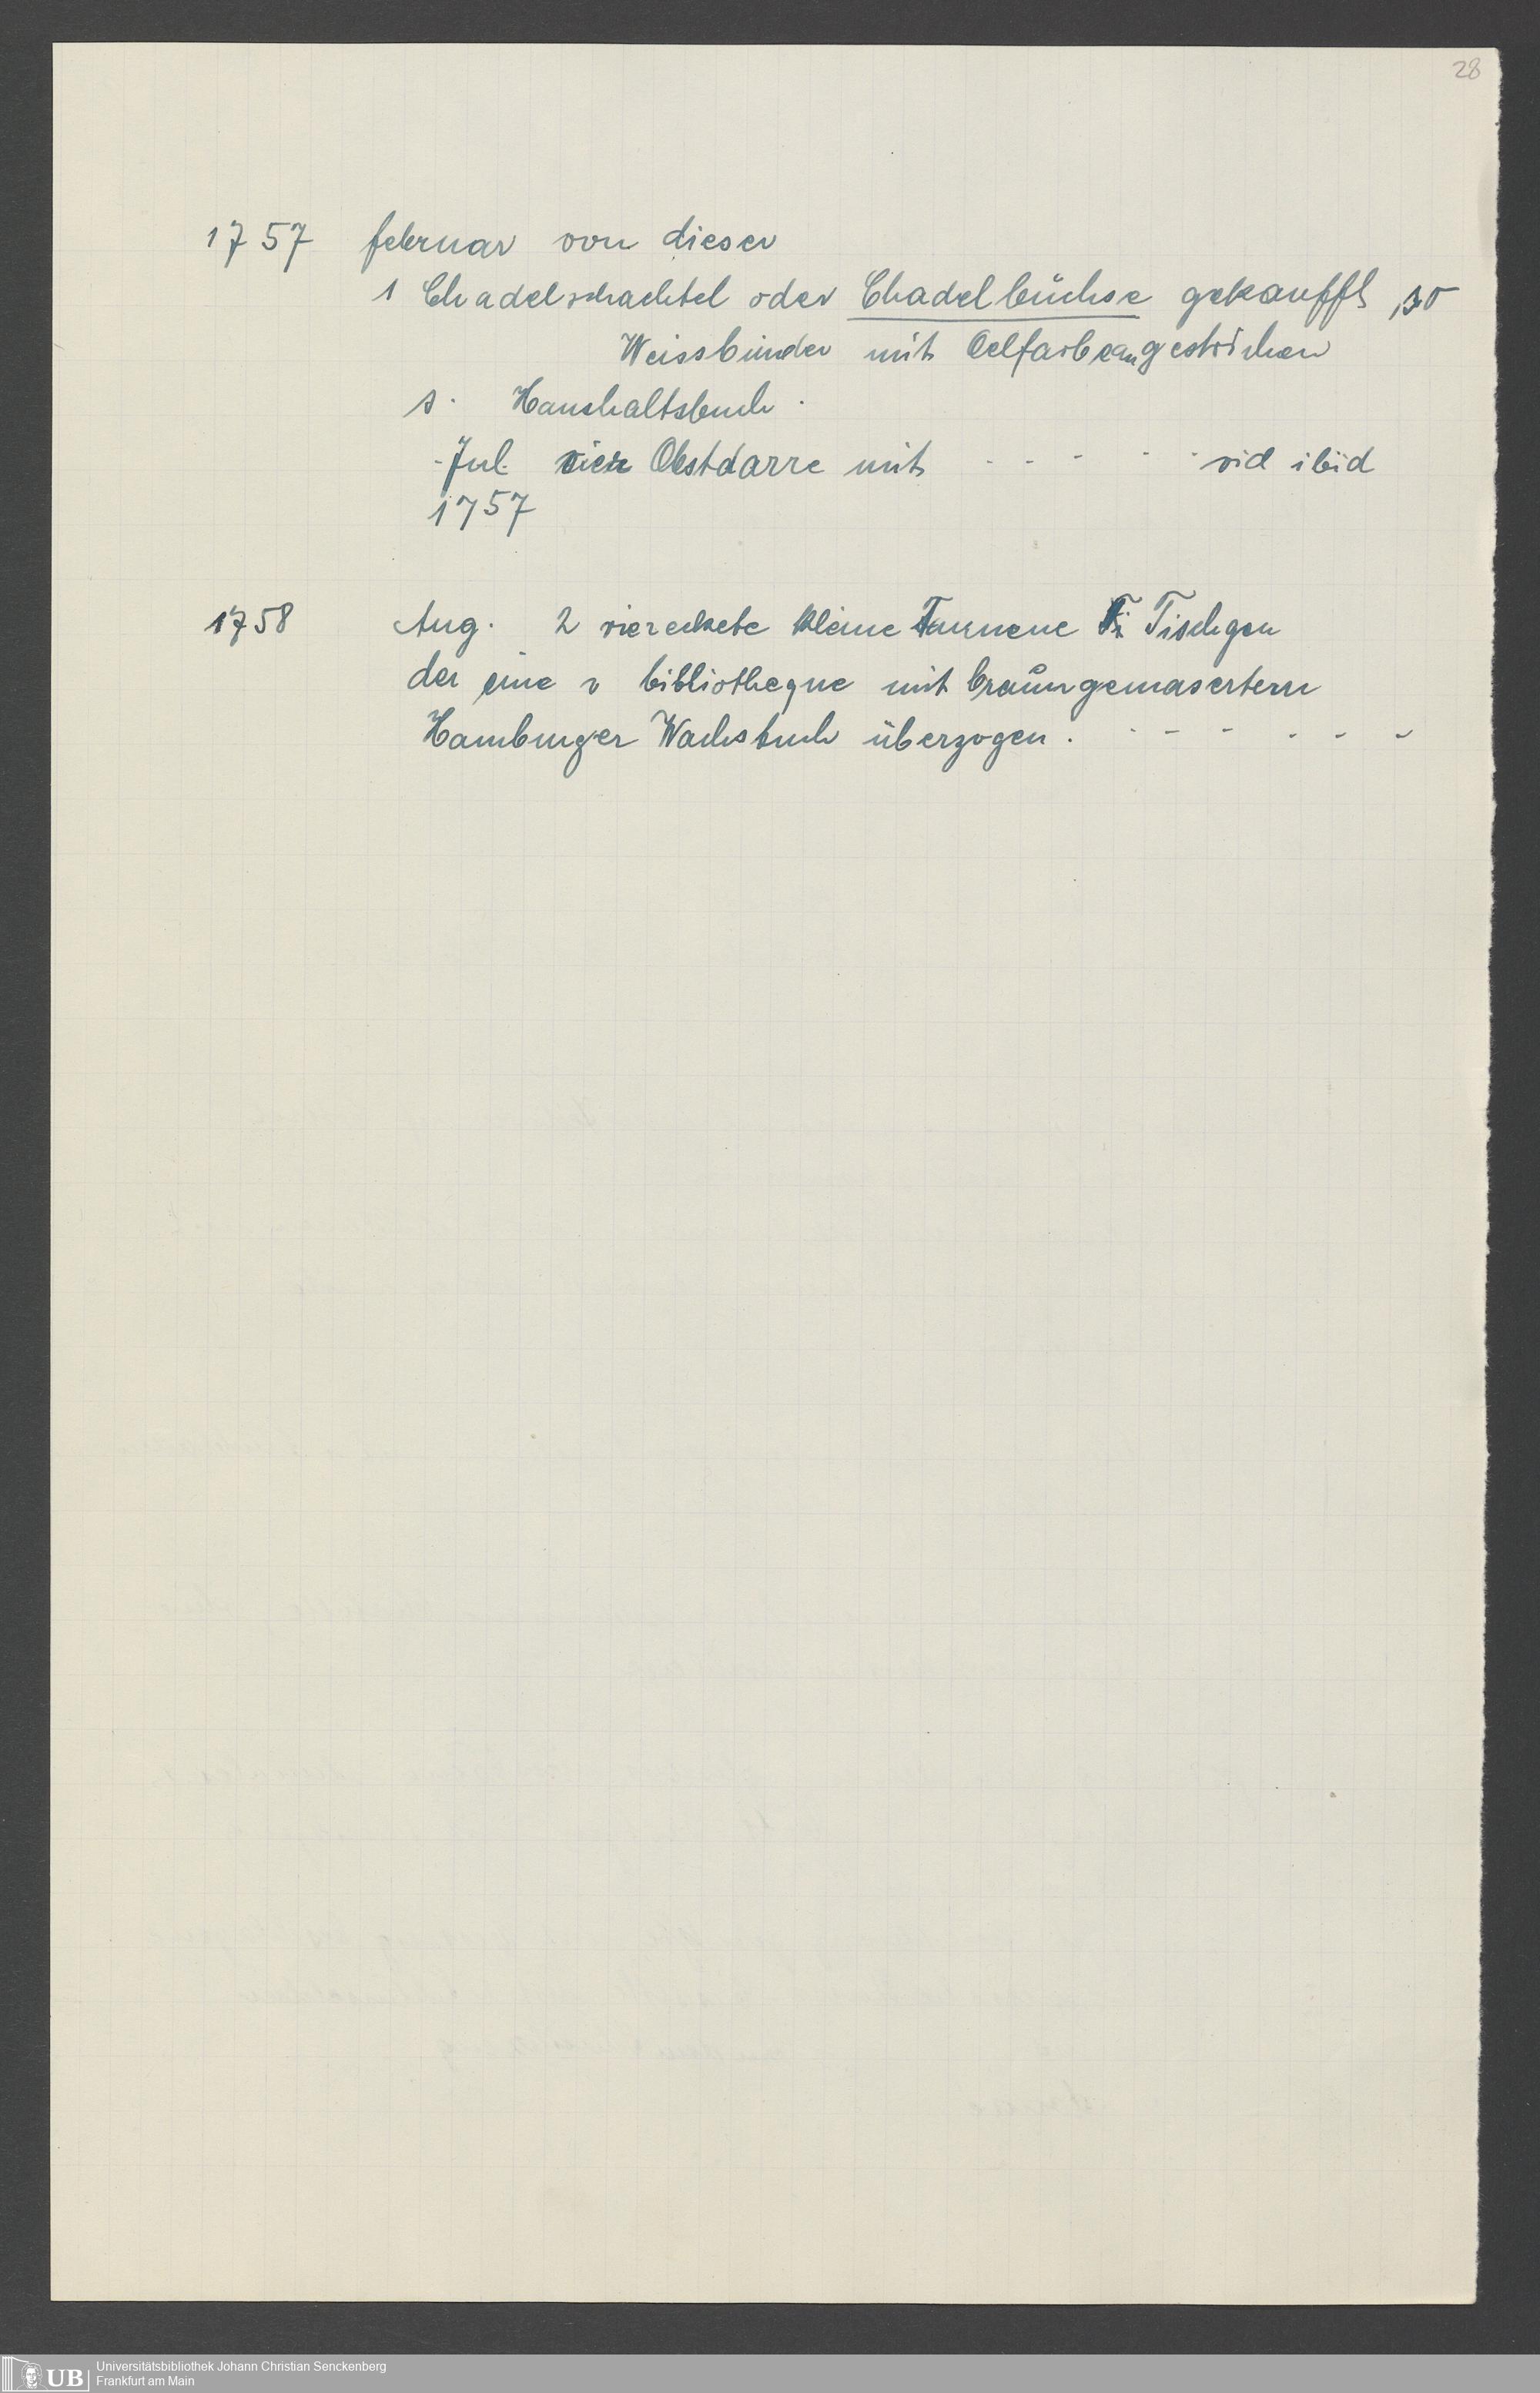 28
1757 februar von dieser
1 Chadelschachtel oder Chadelbüchse gekaufft
Weissbinder mit Oelfarbe angestrichen
s. Haushaltsbuch.
- Jul. Obstdarre mit - - - - - vid ibid
1757
1758 Aug. 2 vierecketе kleine Tannene Tischgen
der eine v bibliotheque mit braungemasertem
Hamburger Wachstuch überzogen. - - - - - -
UB
Universitätsbibliothek Johann Christian Senckenberg
Frankfurt am Main